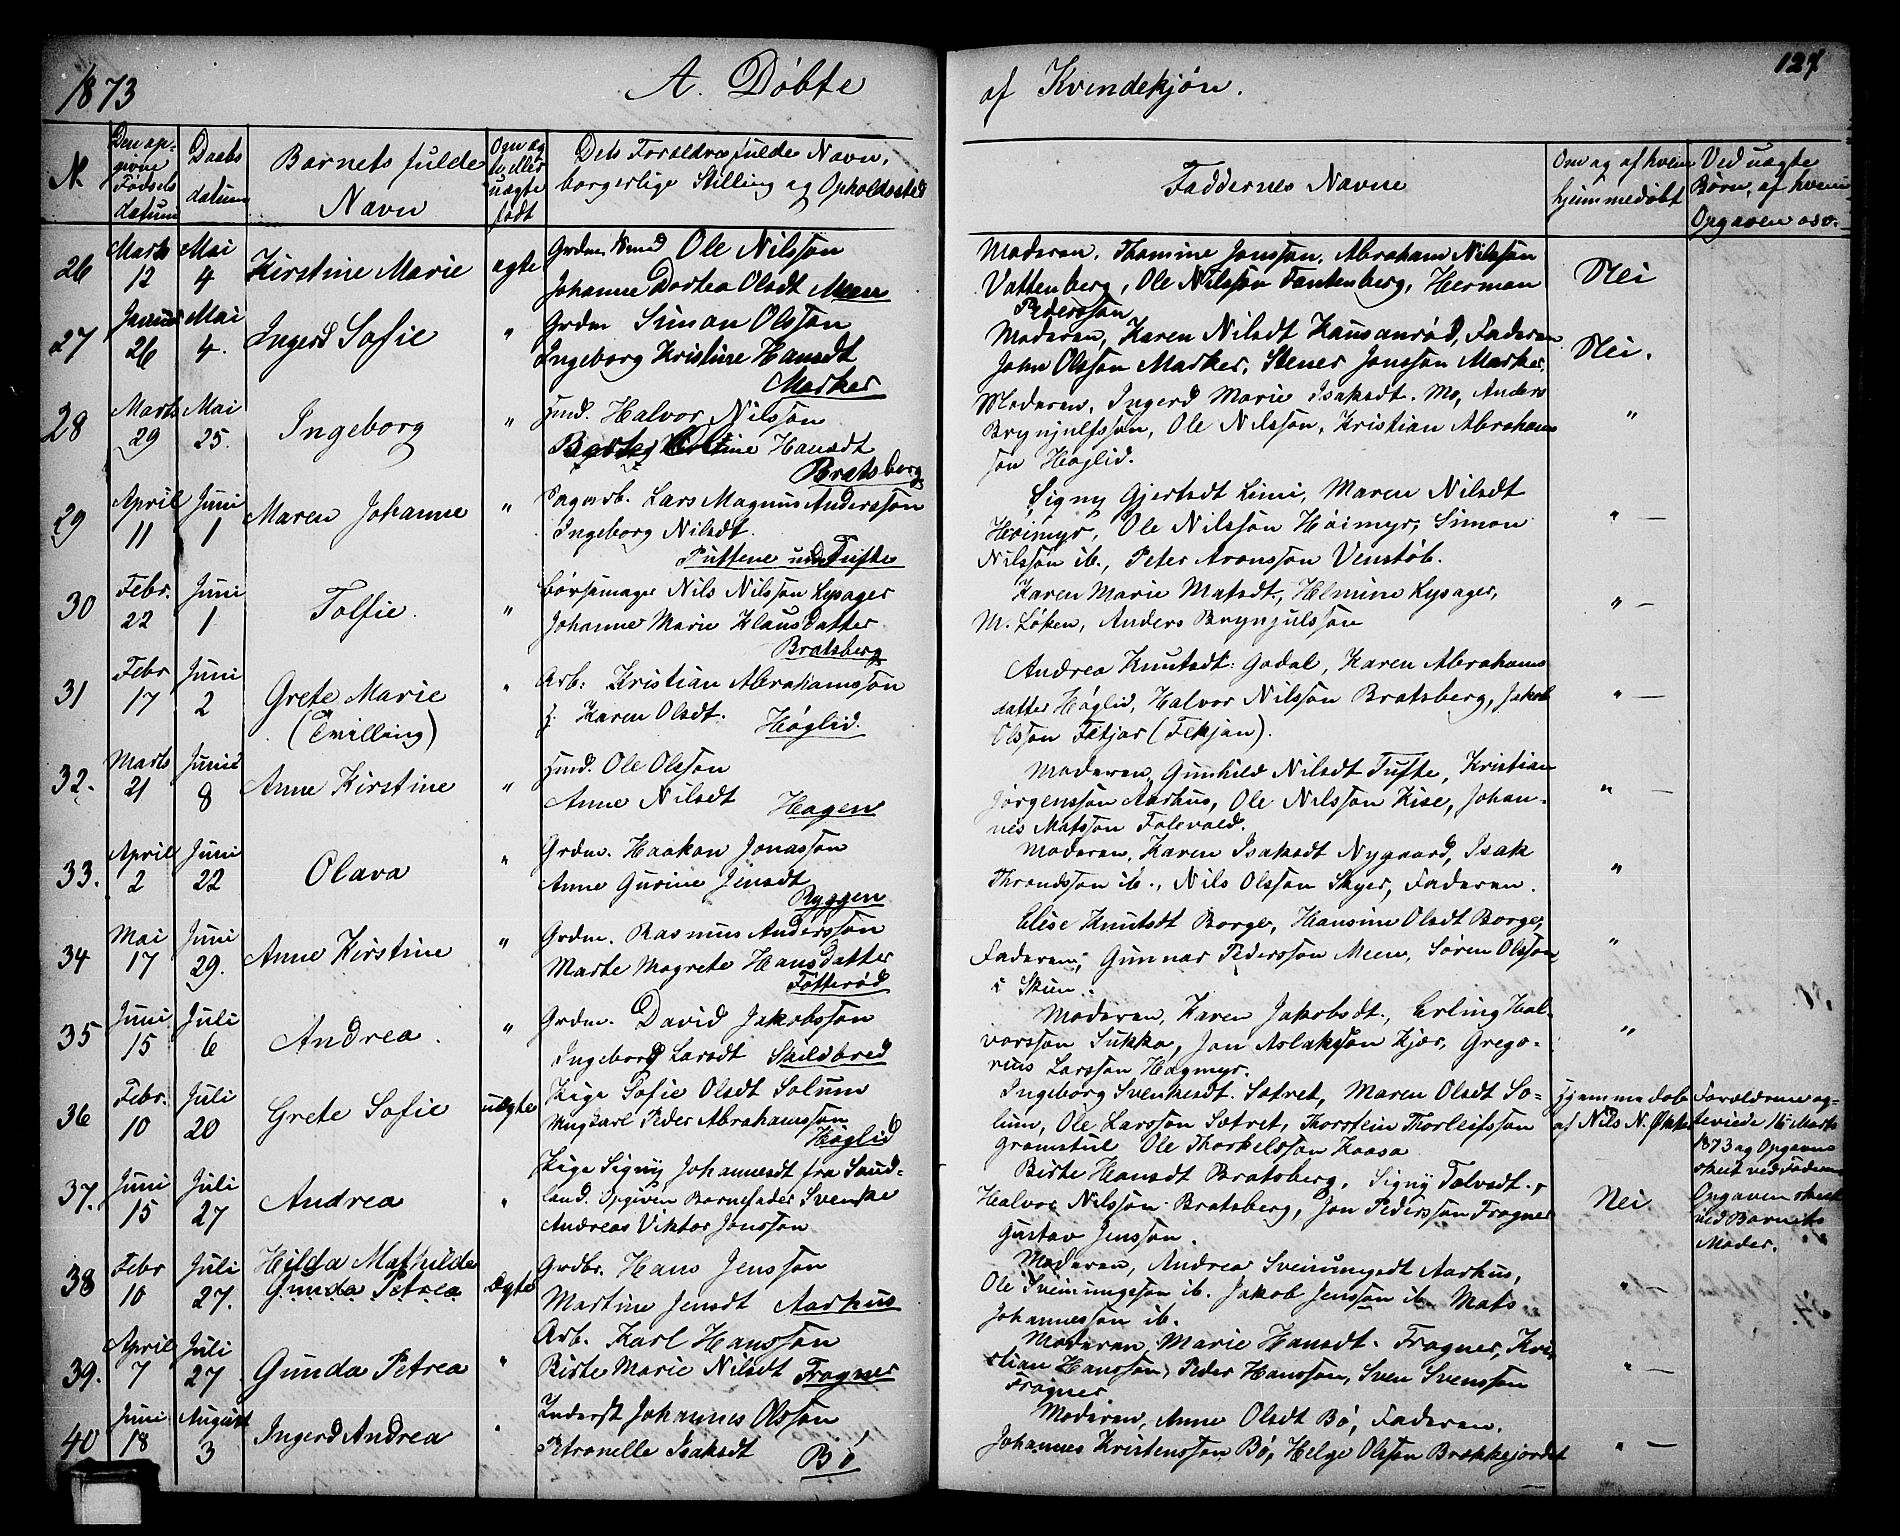 1873 A. Døbte af Kvindekjøn. 127
N. Den opgivne Fødsels datum Daabs datum Barnets fulde Navn Om ægte eller uægte født Dets Forældres fulde Navn, borgerlige Stilling og Opholdssted Faddernes Navne Om og af hvem hjemmedøbt Ved uægte Børn, af hvem Opgaven osv.
26 Marts 12 Mai 4 Kirstine Marie ægte
Grdm. Ole Nilssøn
Johanne Dortea Olsdt Meen
Moderen, Thomine Jonsson, Abraham Nilssøn
Vattenberg, Ole Nilssøn Tantenberg, Herman
Pederssøn
Nei
27 Januar 26 Mai 4. Ingerd Sofie "
Grdm Simon Olssøn
Ingeborg Kristine Hansdt
Marker
Moderen, Karen Nilsdt Hausanrød, Faderen
John Olssøn Marker, Stener Jonssøn Marker.
Nei.
28 Marts 29 Mai 25. Ingeborg "
Hmd. Halvor Nilssøn
Hansdt
Bratsberg
Moderen, Ingerd Marie Isaksdt. Mo, Anders
Brynjulfssøn, Ole Nilssøn, Kristian Abraham-
søn Høglid.
"
29 April 11 Juni 1 Maren Johanne "
Lars Magnus Anderssøn
Ingeborg Nilsdt.
Puttene und. Tufte
Signy Gjertsdt Limi, Maren Nilsdt
Høimyr, Ole Nilssøn Høimyr, Simon
Nilssøn ib., Peter Aronssøn Venstøb.
" —
30 Febr. 22 Juni 1 Tolfie. "
Børsemager Nils Nilssøn Lysager
Johanne Marie Klausdatter
Bratsberg
Karen Marie Matsdt., Helmine Lysager,
M. Løken, Anders Brynjulssøn
" —
31 Febr 17 Juni 2 Grete Marie
(Tvilling) "
Arb: Kristian Abrahamssøn
H. Karen Olsdt.
Høglid.
Andrea Knutsdt: Godal, Karen Abrahams
datter Høglid, Halvor Nilssøn Bratsberg, Jakob
Olssøn Fetjar (Fekjan).
" —
32. Marts 21 Juni 8 Anne Kirstine "
Hmd. Ole Olssøn
Anne Nilsdt Hagen
Moderen, Gunhild Nilsdt Tufte, Kristian
Jørgenssøn Aarhus, Ole Nilssøn Kise, Johan-
nes Matssøn Folevald.
" —
33. April 2 Juni 22 Olava "
Grdm. Haakon Jonassøn
Anne Gurine Jensdt
Ryggen
Moderen, Karen Isaksdt Nygaard, Isak
Throndssøn ib., Nils Olssøn Skyer, Faderen.
"
34 Mai 17 Juni 29. Anne Kirstine "
Grdm. Rasmus Anderssøn
Marte Magrete Hansdatter
Føtterød
Elise Knutsdt Borge, Hansine Olsdt Borge,
Faderen, Gunnar Pederssøn Meen, Søren Olssøn
i Skien.
"
35 Juni 15 Juli 6 Andrea. "
Grdm. David Jakobssøn
Ingeborg Larsdt Skildbred
Moderen, Karen Jakobsdt., Erling Hal-
vorssøn Sukka, Jon Aslakssøn Kjær, Grego-
rius Larssøn Hagmyr.
"
36 Febr. 10 Juli 20 Grete Sofie uægte
Pige Sofie Olsdt Solum
Ungkarl Peder Abrahamssøn
Høglid
Ingeborg Svenkesdt. Sætret, Maren Olsdt So-
lum, Ole Larssøn Sætret, Thorstein Thorleifssøn
Gromstul Ole Thorkelssøn Kaasa
Hjemmedøb
af Nils N. Økter
Forældrene og-
teviede 16 Marts
1873 og Opgaven
skeet ved Faderen
37. Juni 15 Juli 27 Andrea "
Pige Signy Johannesdt fra Saud-
land. Opgiven Barnefader Svenske
Andreas Viktor Jonssøn
Birte Hansdt Bratsberg, Signy Tolvsdt.,
Halvor Nilssøn Bratsberg, Jon Pederssøn Fragner
Gustav Jenssøn.
Nei
Opgaven skeet
ved Barnets
Moder.
38 Febr 10 Juli 27. Hilda Mathilde
Gunda Petrea ægte
Grdbr. Hans Jenssøn
Martine Jensdt Aarhus
Moderen, Andrea Sveinungsdt Aarhus,
Ole Sveinungssøn ib. Jakob Jenssøn ib Mats
Johannessøn ib.
" —
39. April 7 Juli 27 Gunda Petrea "
Arb. Karl Hanssøn
Birte Marie Nilsdt Fragner
Moderen, Marie Hansdt. Fragner, Kri-
stian Hanssøn, Peder Hanssøn, Sven Svenssøn
Fragner
" —
40 Juni 18 August 3 Ingerd Andrea "
Inderst Johannes Olssøn
Petronelle Isaksdt Bø
Moderen, Anne Olsdt Bø, Faderen,
Johannes Kristenssøn Bø, Helge Olssøn Brekkejordet
" —